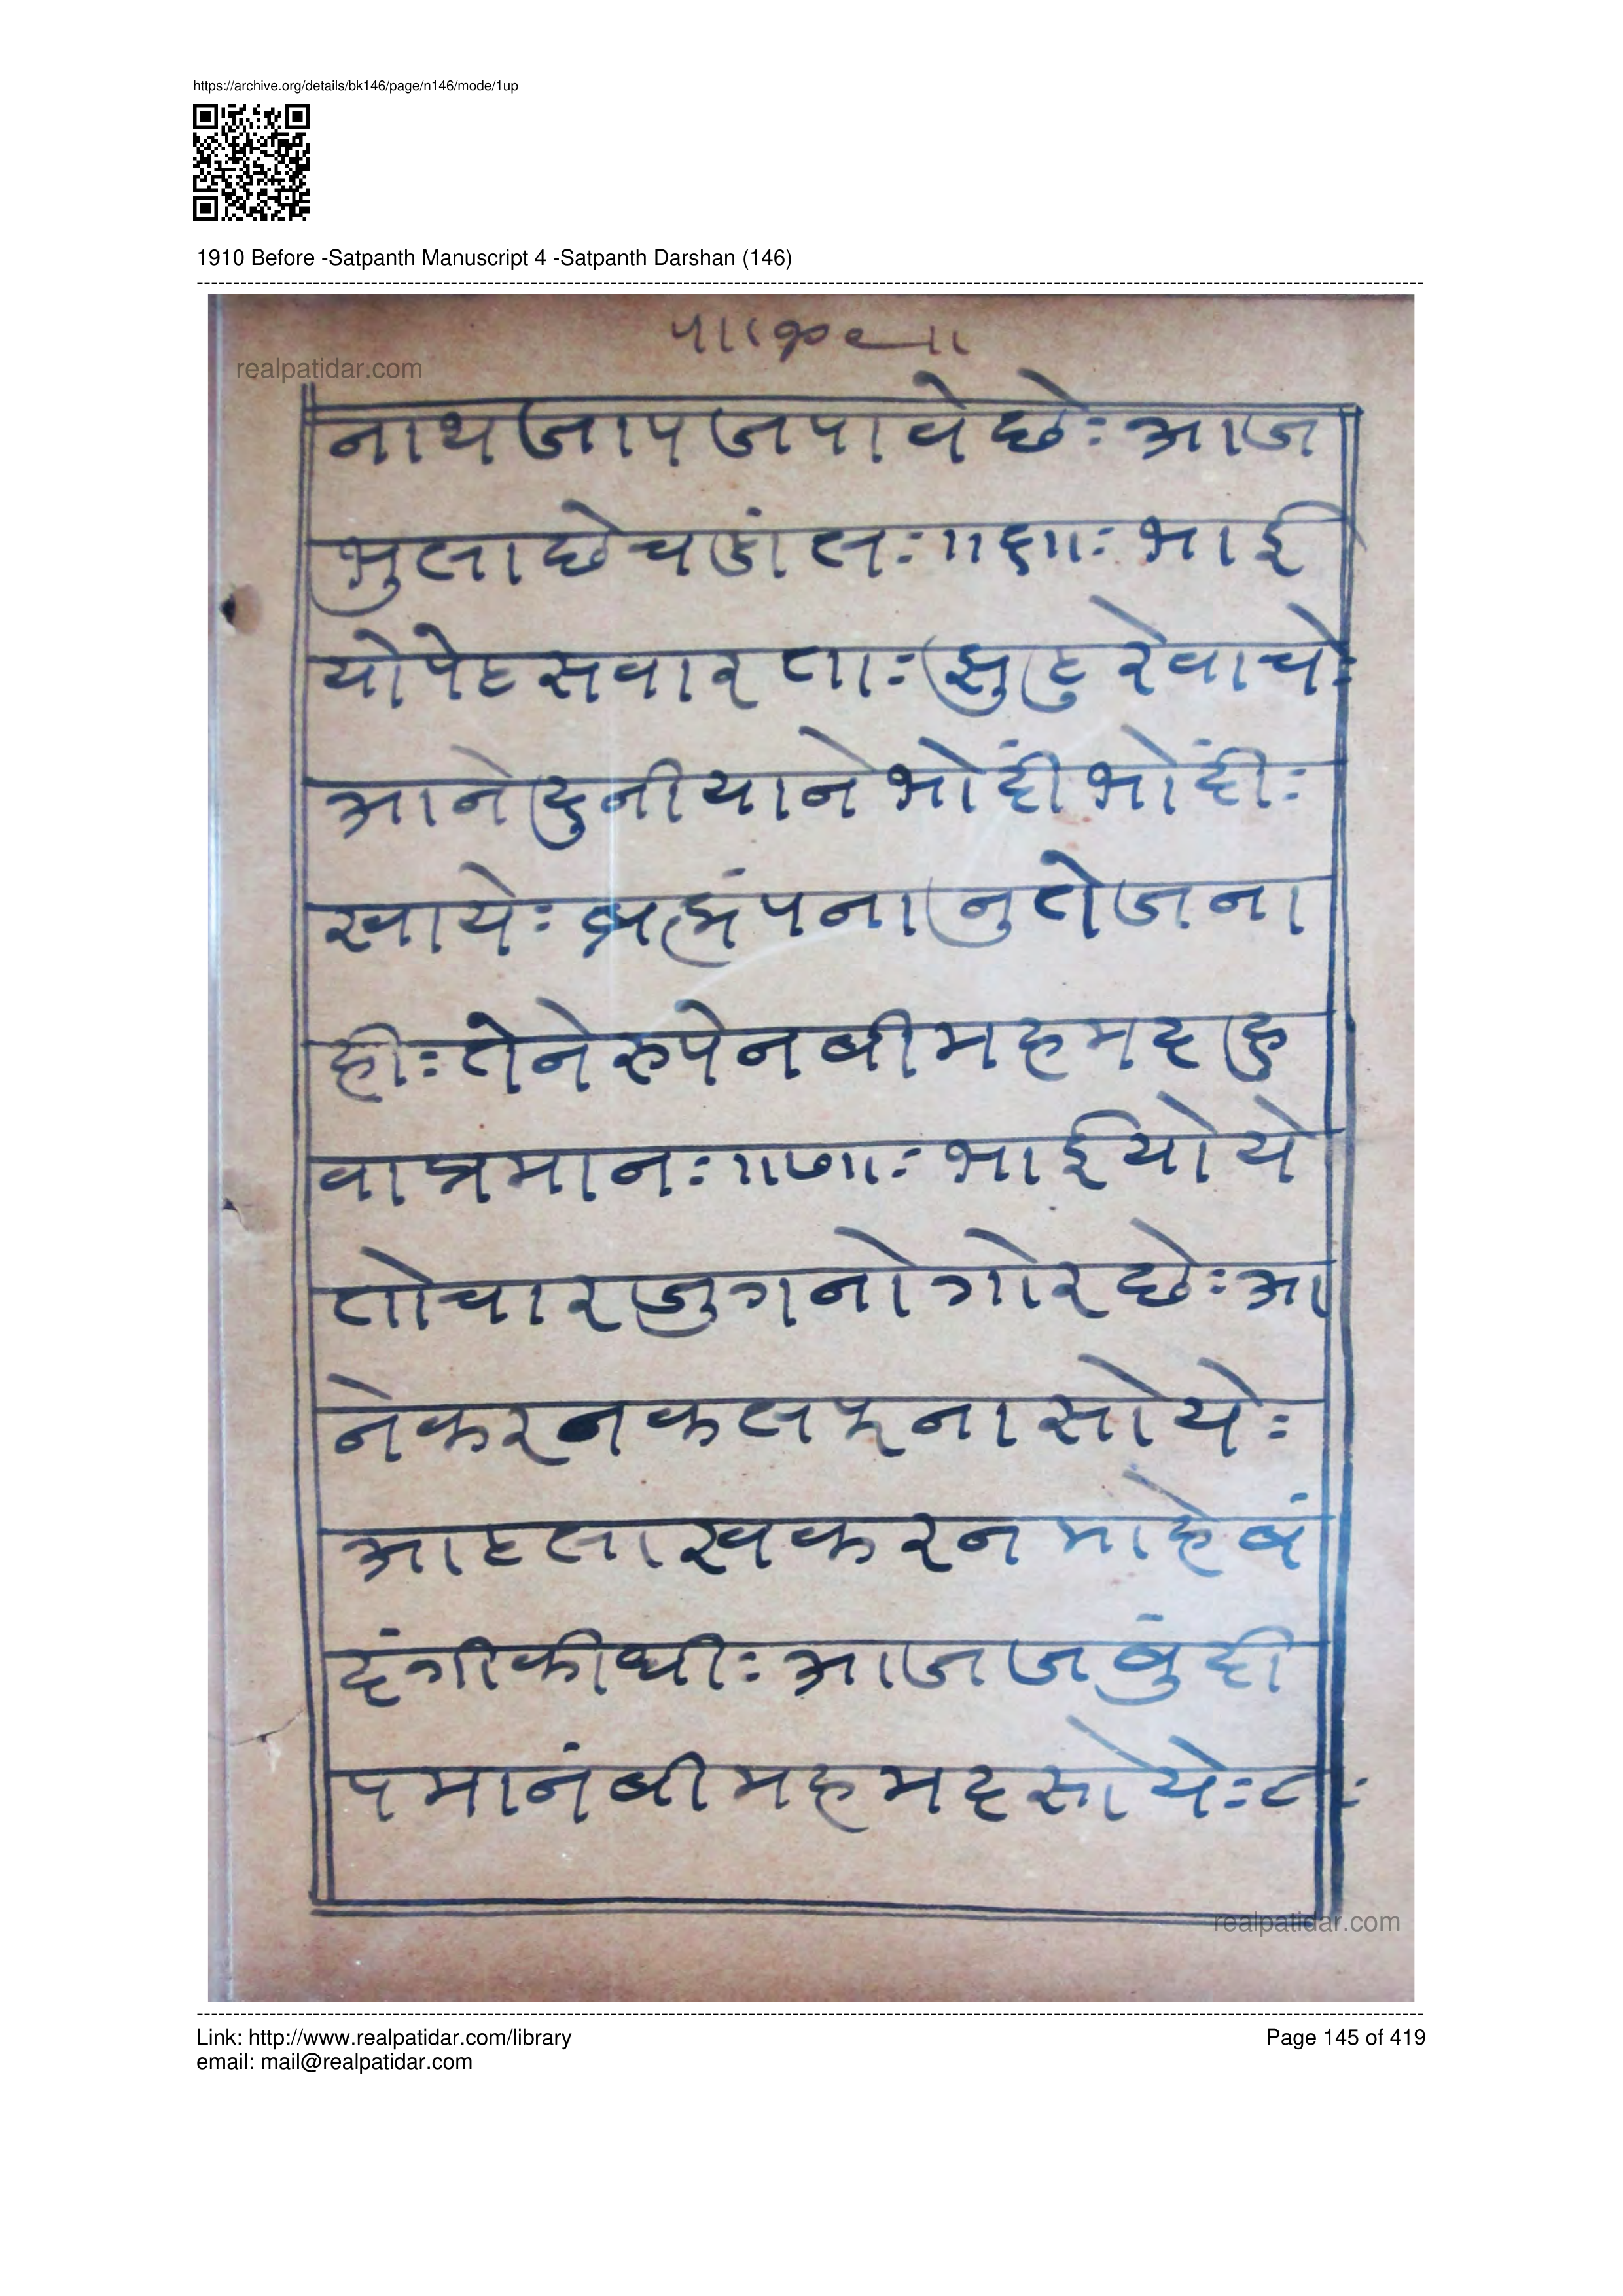 https://archive.org/details/bk146/page/n146/mode/1up
1910 Before -Satpanth Manuscript 4 -Satpanth Darshan (146)
realpatidar.com
नाथ जाप जपावे छेः आज
भुला छे चडांलः ॥६॥ः भाई
यो पेट सवारताः झुठु रे वाचेः
आने दुनीयाने भोंदी भोंदीः
खायेः ब्रह्मंपनानु तेज ना
हीः तेने रुपे नबी महमद हु
वा प्रमानः ॥७॥ः भाईयो ये
तो चार जुगनो गोर छेः आ
ने करनकलपना सोयेः
आठ लाख करन माहे बं
दंगी कीधीः आज जबुंदी
पमा नंबी महमद सोयेः ८ः
realpatidar.com
Link: http://www.realpatidar.com/library
Page 145 of 419
email: mail@realpatidar.com